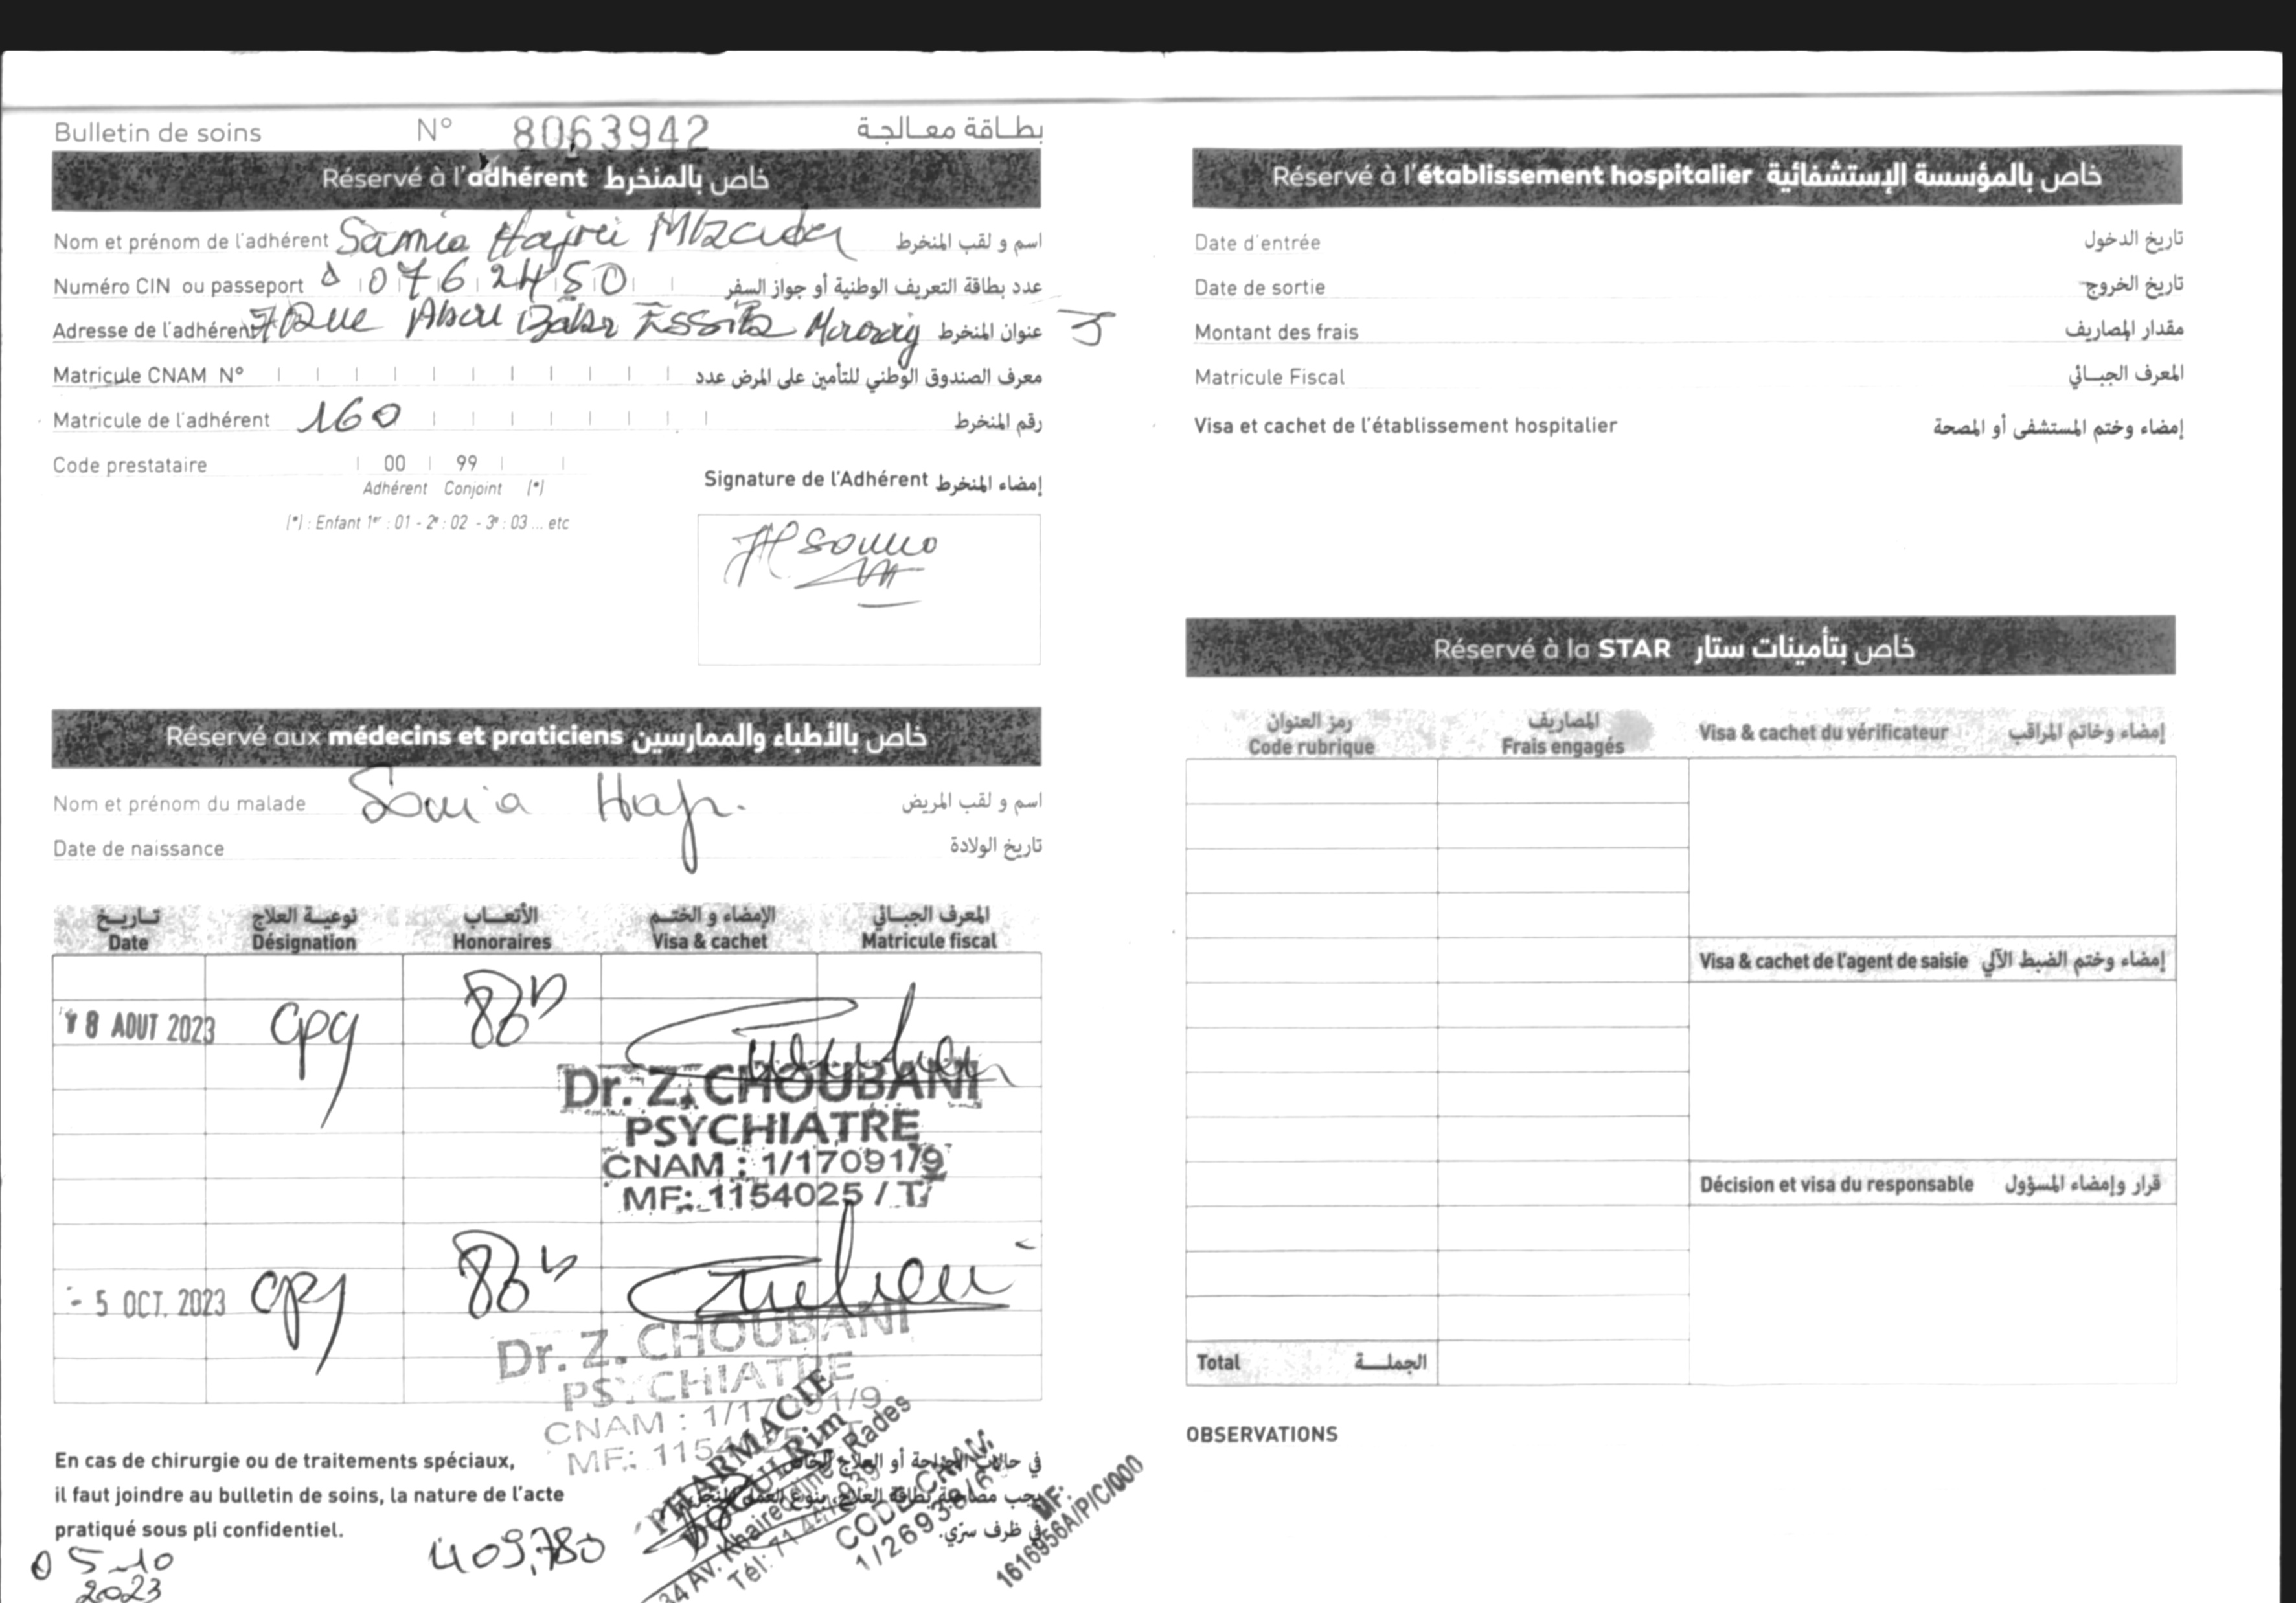 Bulletin de soins N° 8063942 بطاقة معالجة
Réservé à l'adhérent خاص بالمنخرط
Nom et prénom de l'adhérent Samia Hajri اسم و لقب المنخرط
Numéro CIN ou passeport 0762450 عدد بطاقة التعريف الوطنية أو جواز السفر
Adresse de l'adhérent 7 Rue Abou Bakr Essi Mourouj عنوان المنخرط
Matricule CNAM N° معرف الصندوق الوطني للتأمين على المرض عدد
Matricule de l'adhérent 160 رقم المنخرط
Code prestataire 00 99
Adhérent Conjoint (*)
(*) : Enfant 1er : 01 - 2e : 02 - 3e : 03 ... etc
Signature de l'Adhérent إمضاء المنخرط
Réservé aux médecins et praticiens خاص بالأطباء والممارسين
Nom et prénom du malade Samia Haj اسم و لقب المريض
Date de naissance تاريخ الولادة
تاريخ نوعية العلاج الأتعاب الإمضاء و الختم المعرف الجبائي
Date Désignation Honoraires Visa & cachet Matricule fiscal
18 AOUT 2023 cpy
Dr. Z. CHOUBANI
PSYCHIATRE
CNAM : 1/17091/9
MF: 1154025 / T
- 5 OCT. 2023 cpy
Dr. Z. CHOUBANI
PSYCHIATRE
CNAM : 1/17091/9
MF: 1154
En cas de chirurgie ou de traitements spéciaux,
il faut joindre au bulletin de soins, la nature de l'acte
pratiqué sous pli confidentiel.
في حالات الجراحة أو العلاج الخاص
يجب مصاحبة بطاقة العلاج بنوع العمل المنجز
في ظرف سري.
05-10
2023
409,780
PHARMACIE
Rim
34 Av. Khaireddine Rades
Tél: 71
CODE CNAM
1/26938/6
MF:
1616956A/P/C/000
Réservé à l'établissement hospitalier خاص بالمؤسسة الإستشفائية
Date d'entrée تاريخ الدخول
Date de sortie تاريخ الخروج
Montant des frais مقدار المصاريف
Matricule Fiscal المعرف الجبائي
Visa et cachet de l'établissement hospitalier إمضاء وختم المستشفى أو المصحة
Réservé à la STAR خاص بتأمينات ستار
رمز العنوان المصاريف
Code rubrique Frais engagés Visa & cachet du vérificateur إمضاء وخاتم المراقب
Visa & cachet de l'agent de saisie إمضاء وختم الضبط الآلي
Décision et visa du responsable قرار وإمضاء المسؤول
Total الجملة
OBSERVATIONS